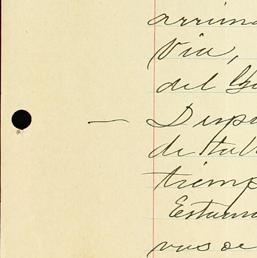 arrim
Via,
del Go
— Dispo
de tal
tiemp
Estam
vas de